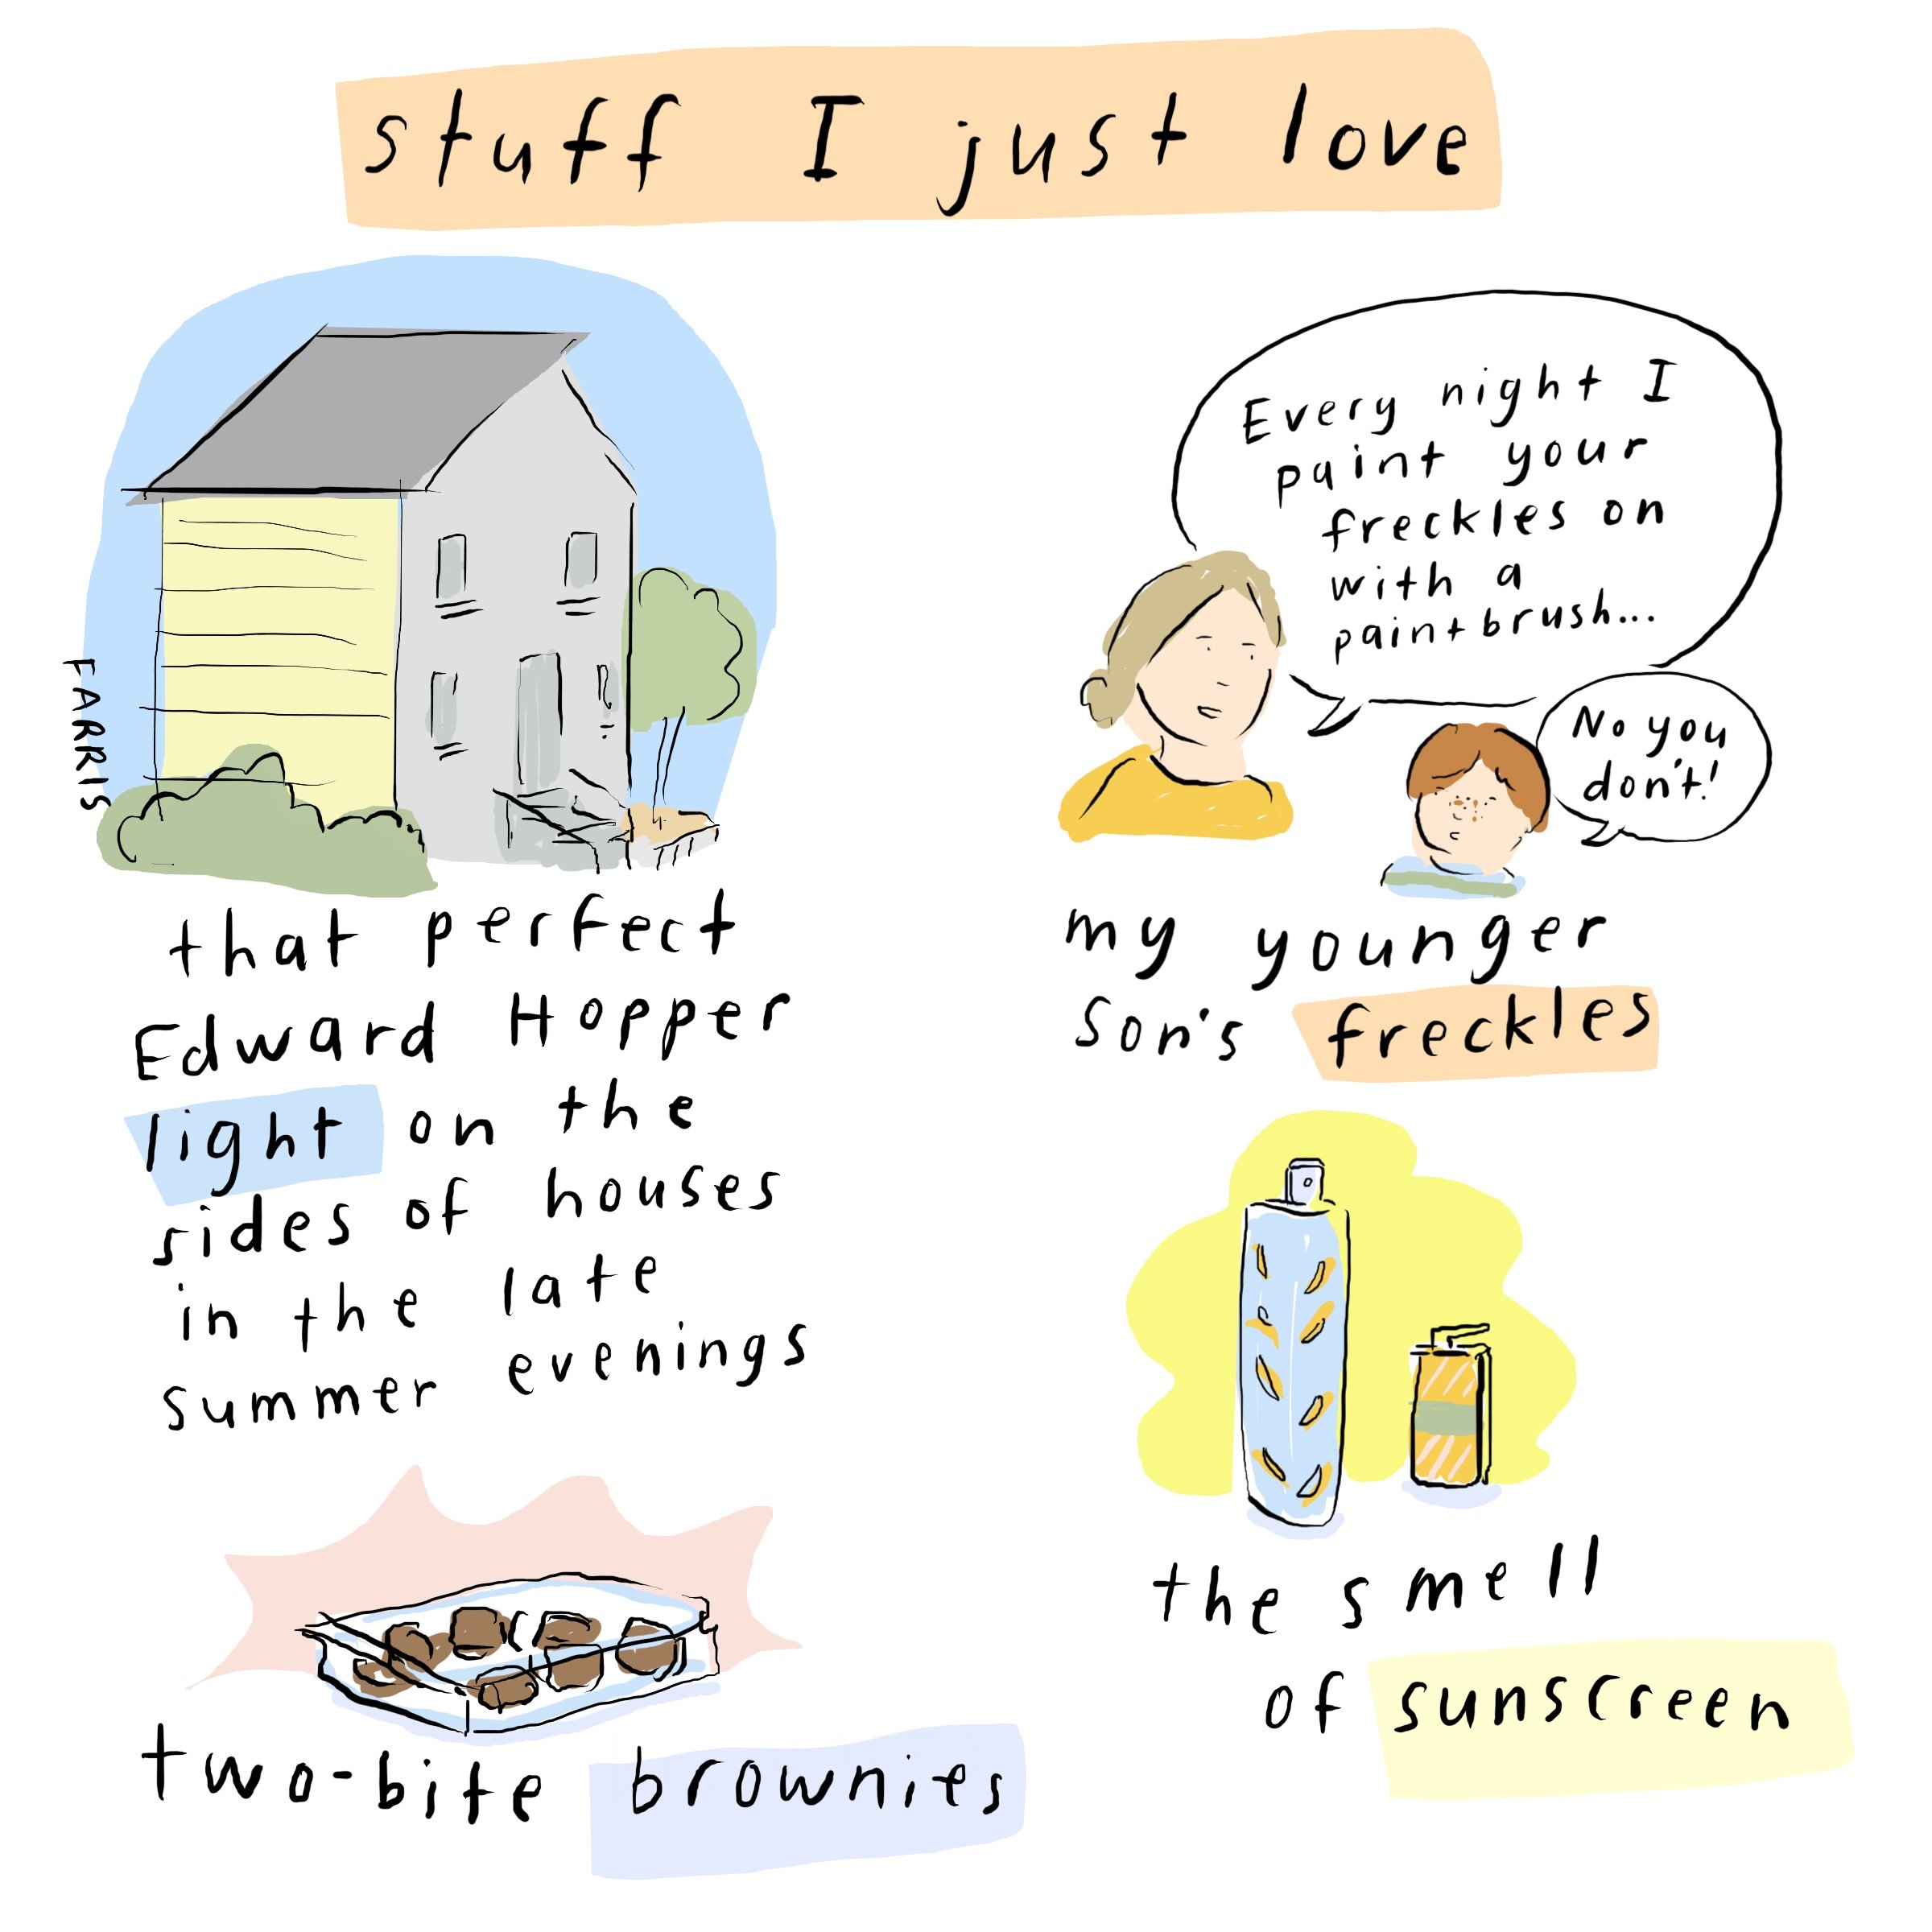 stuff I just love
FARRIS
that perfect
Edward Hopper
light on the
sides of houses
in the late
summer evenings
Every night I
paint your
freckles on
with a
paintbrush...
No you
don't!
my younger
son's freckles
two-bite brownies
the smell
of sunscreen